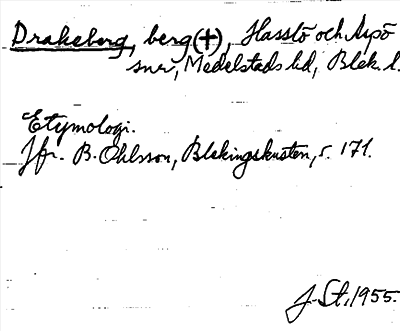 Drakeberg, berg(+), Hasslö och Aspö
snr, Medelstads hd, Blek. l.
Etymologi.
Jfr. B. Ohlsson, Blekingskusten, s. 171.
J. St. 1955.